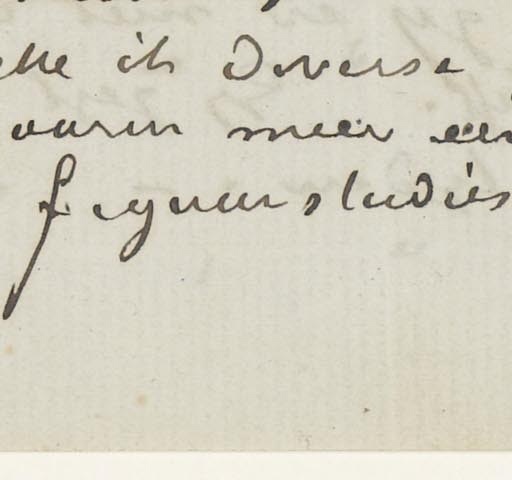 ik Diverse
waarin meer een
figuurstudies